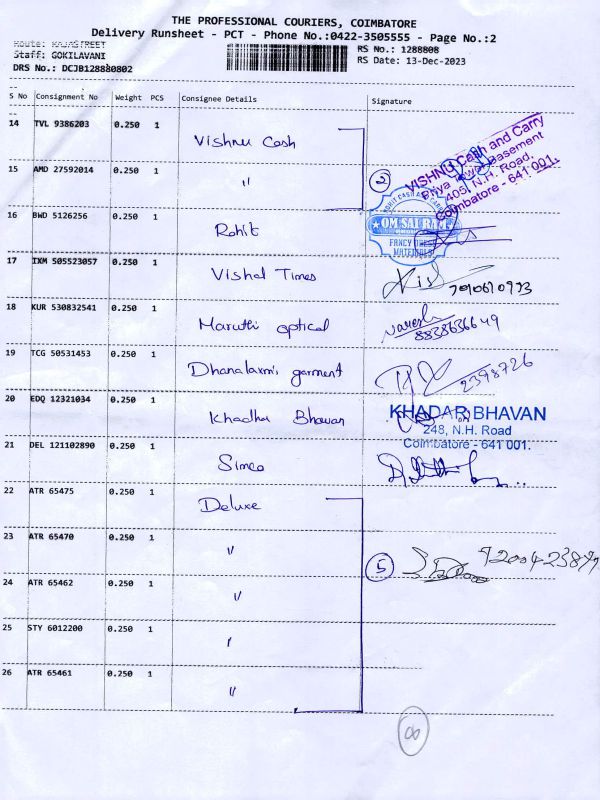 THE PROFESSIONAL COURIERS, COIMBATORE
Delivery Runsheet - PCT - Phone No.:0422-3505555 - Page No.:2
Route: RAJASTREET
Staff: GOKILAVANI
DRS No.: DCJB128880802
RS No.: 1288808
RS Date: 13-Dec-2023
S No Consignment No Weight PCS Consignee Details Signature
14 TVL 9386203 0.250 1 Vishnu Cash
VISHNU Cash and Carry
Priya Tower Basement
405, N.H. Road,
Coimbatore - 641 001.
15 AMD 27592014 0.250 1 " 2
16 BWD 5126256 0.250 1 Rohit
OM SAI RAM
FANCY DRESS
MATERIALS
17 IXM 505523057 0.250 1 Vishal Times
18 KUR 530832541 0.250 1 Maruthi optical 8838636649
19 TCG 50531453 0.250 1 Dhanalaxmi garment 2398726
20 EDQ 12321034 0.250 1 Khadhar Bhavan
KHADAR BHAVAN
248, N.H. Road
Coimbatore - 641 001.
21 DEL 121102890 0.250 1 Simco
22 ATR 65475 0.250 1 Deluxe
23 ATR 65470 0.250 1 " 5
24 ATR 65462 0.250 1 "
25 STY 6012200 0.250 1 "
26 ATR 65461 0.250 1 "